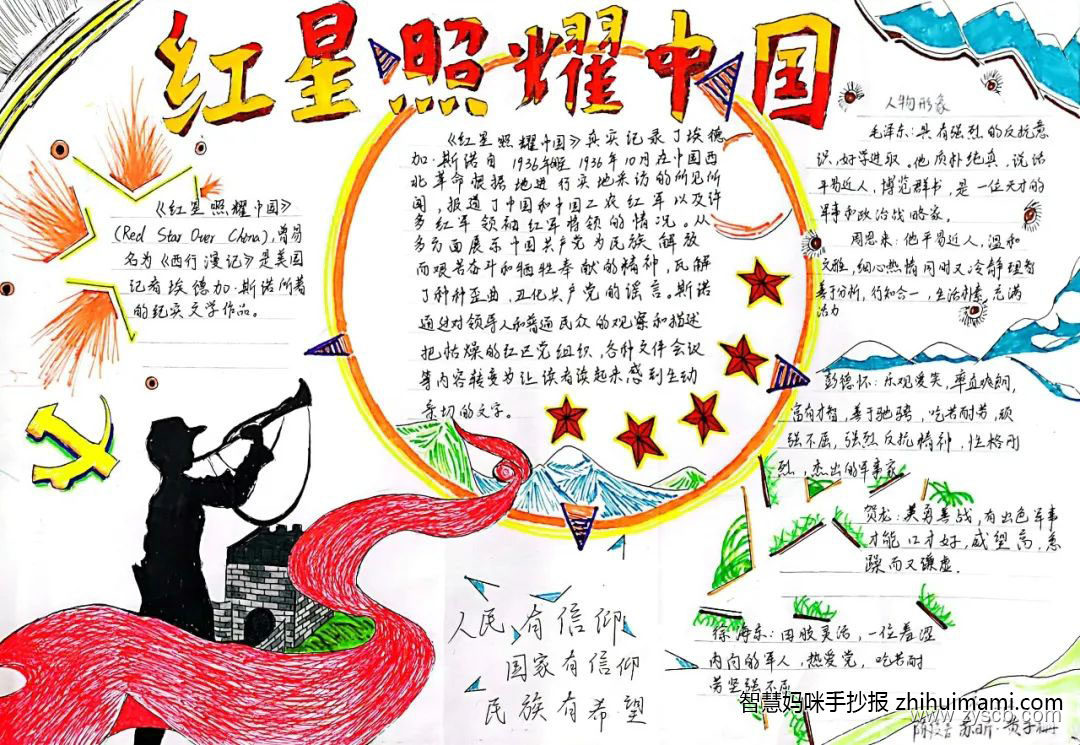 红星照耀中国
《红星照耀中国》
(Red Star Over China),曾易
名为《西行漫记》是美国
记者埃德加·斯诺所著
的纪实文学作品。
《红星照耀中国》真实记录了埃德
加·斯诺自1936年 1936年10月在中国西
北革命根据地进行实地采访的所见所
闻,报道了中国和中国工农红军以及许
多红军领袖红军将领的情况。从
多方面展示中国共产党为民族解放
而艰苦奋斗和牺牲奉献的精神,瓦解
了种种歪曲、丑化共产党的谣言。斯诺
通过对领导人和普通民众的观察和描述
把枯燥的红区党组织,各种文件会议
等内容转变为让读者读起来感到生动
亲切的文字。
人物形象
毛泽东:具有强烈的反抗意
识,好学进取。他质朴纯真,说话
平易近人,博览群书,是一位天才的
军事和政治战略家。
周恩来:他平易近人,温和
文雅,细心热情同时又冷静理智
善于分析,行知合一,生活朴素,充满
活力
彭德怀:乐观爱笑,率直爽朗,
富有才智,善于驰骋,吃苦耐劳,顽
强不屈,强烈反抗精神,性格刚
烈,杰出的军事家
贺龙:英勇善战,有出色军事
才能口才好,威望高,急
躁而又谦虚.
徐海东:田 灵活,一位羞涩
内向的军人,热爱党,吃苦耐
劳坚强不屈
人民有信仰
国家有信仰
民族有希望
智慧妈咪手抄报 zhihuimami.com
www.zyscb.com